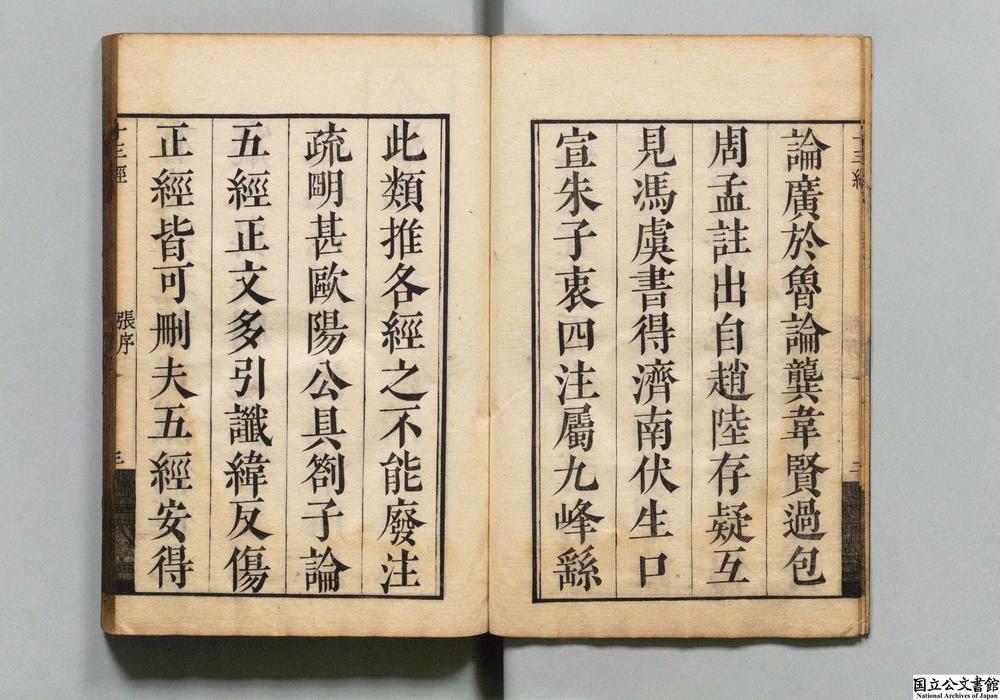 論廣於魯論龔韋賢過包
周孟註出自趙陸存疑互
見馮虞書得濟南伏生口
宣朱子衷四注屬九峰繇
此類推各經之不能廢注
疏明甚歐陽公具劄子論
五經正文多引讖緯反傷
正經皆可刪夫五經安得
張序
国立公文書館
National Archives of Japan